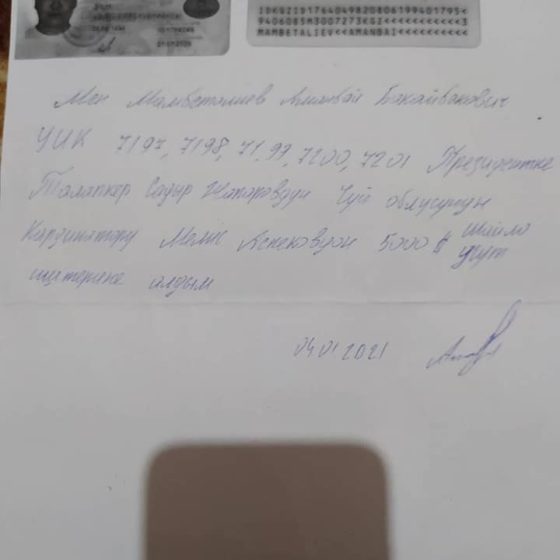 IDKGZID1764049820806199401795
9406085M3007273KGZ<<<<<<<<<<<3
MAMBETALIEV<<AMANBAI<<<<<<<<<<
Мен Мамбеталиев Аманбай Бакайбекович
УИК 7197, 7198, 7199, 7200, 7201 Президентке
Талапкер Садыр Жапаровдун Чуй облусунун
Кардинатору Мелис Аспековдон 5000 $ Шайло уют
иштерине алдым
04.01 2021